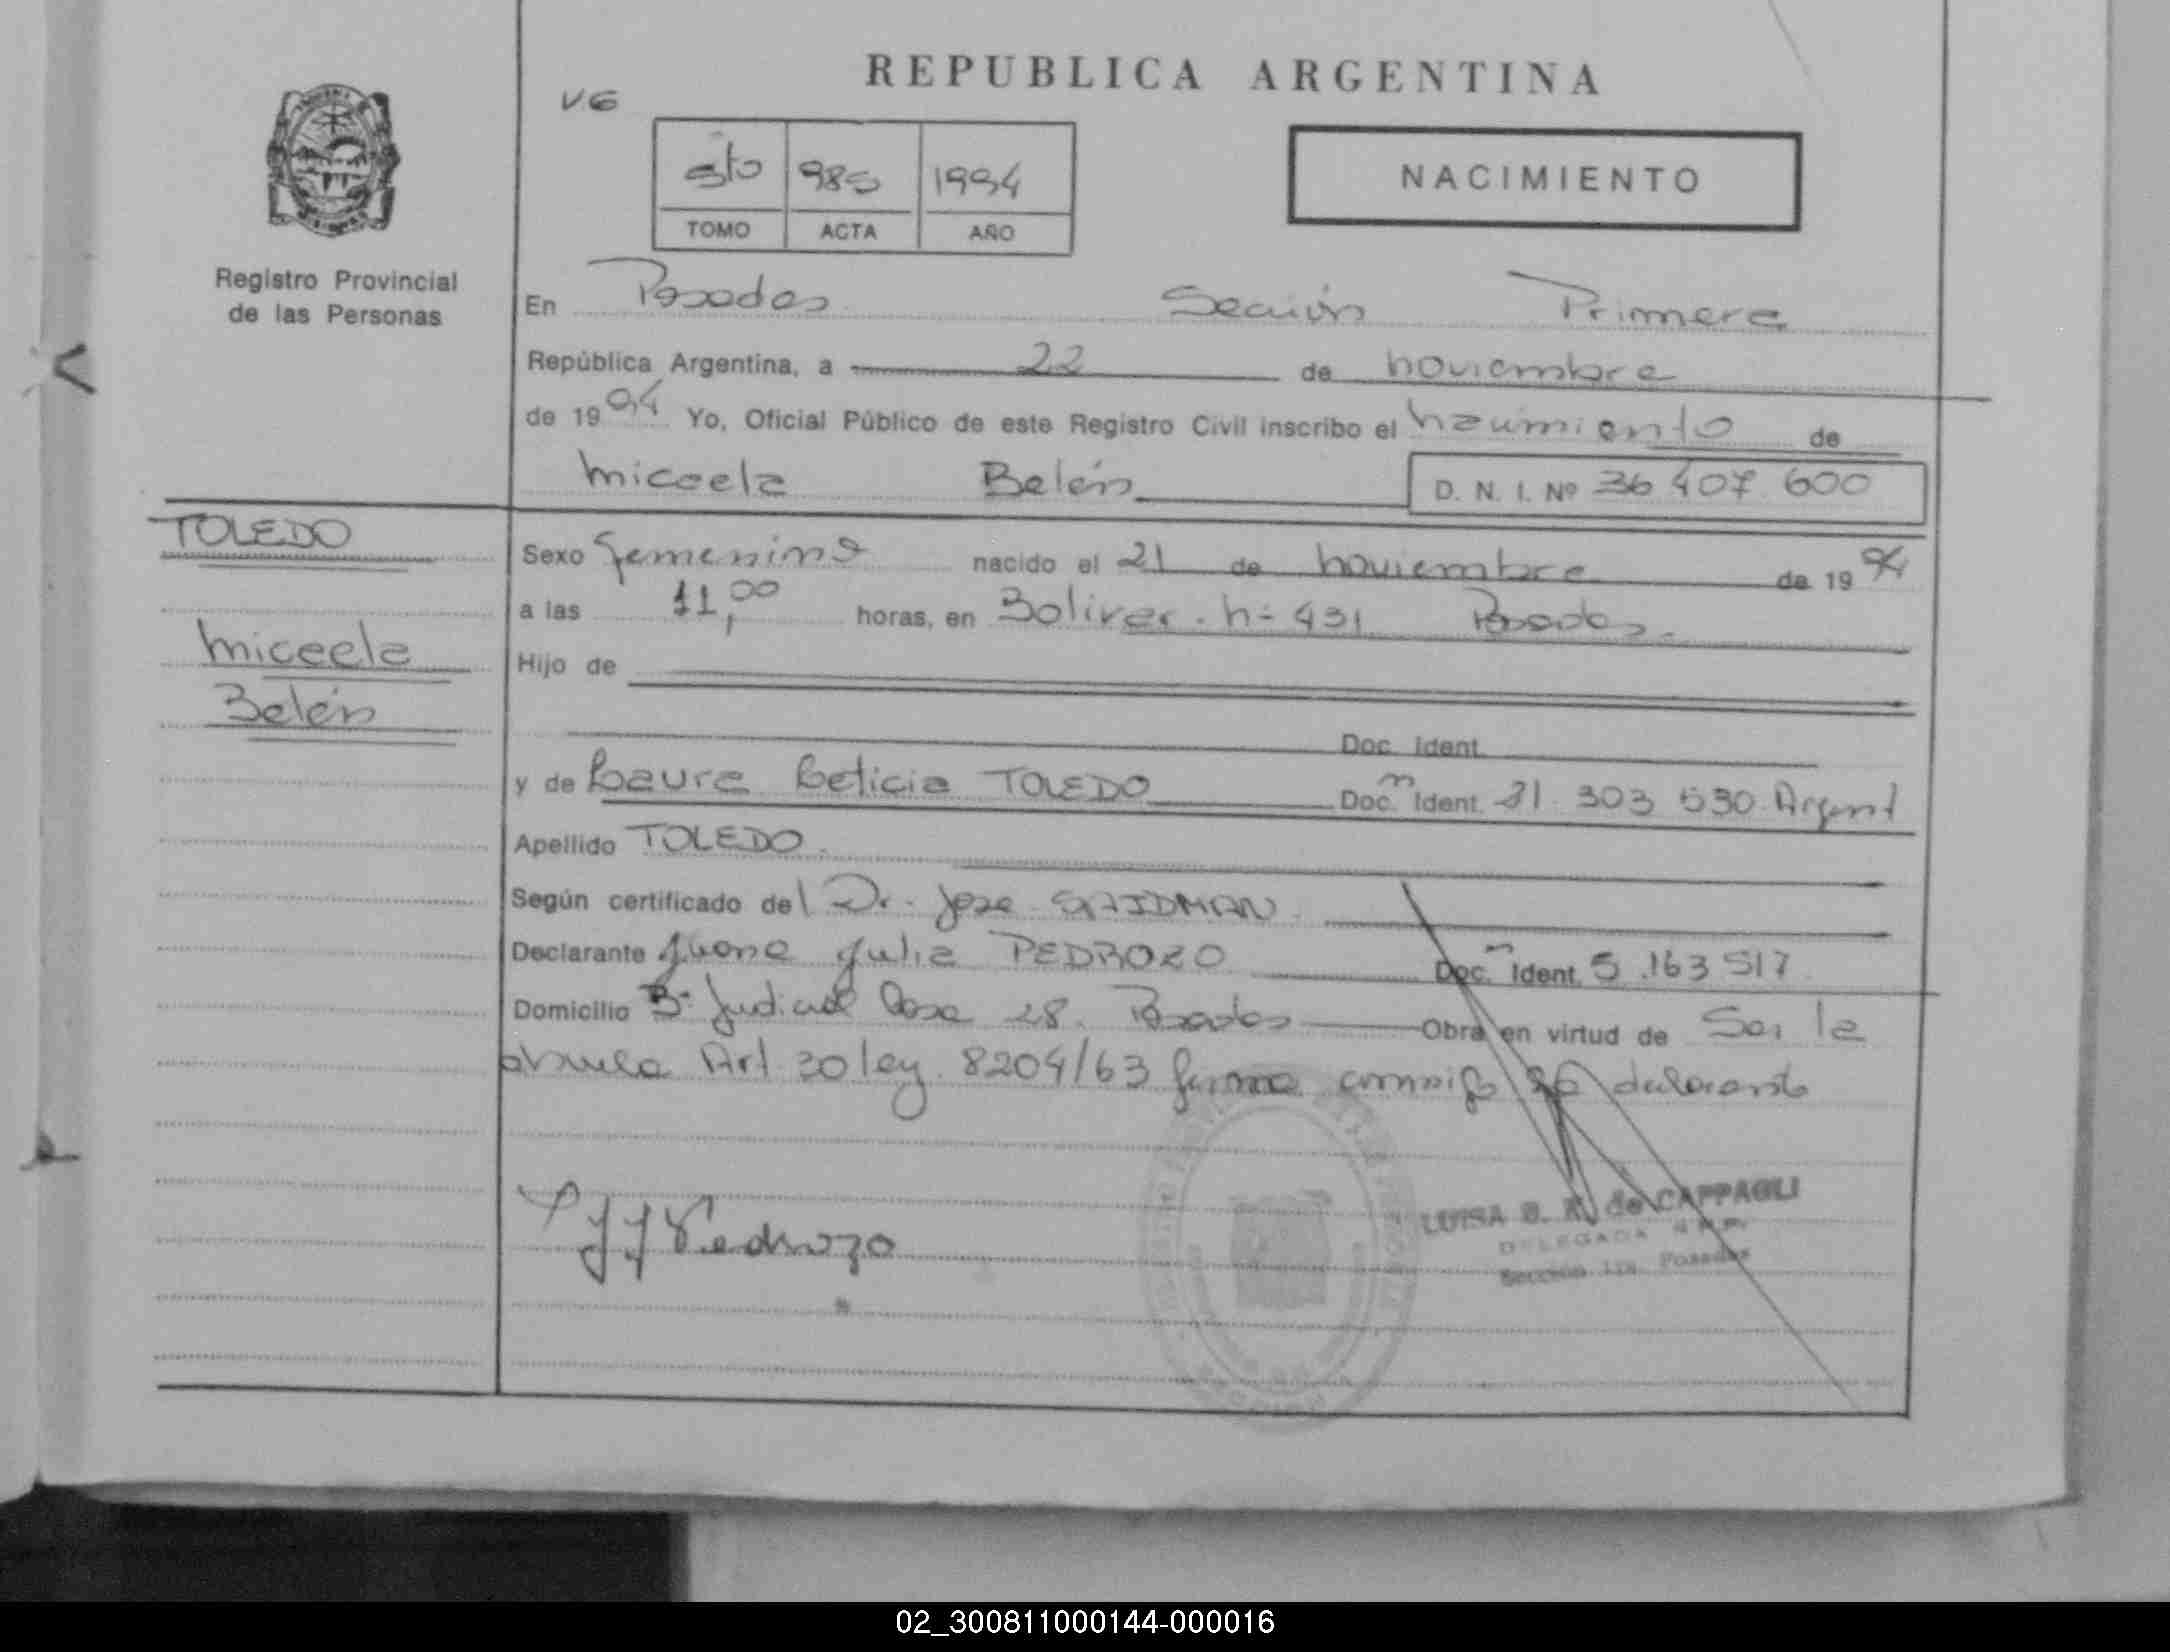 REPUBLICA ARGENTINA
VG
5to 985 1994
TOMO ACTA AÑO
NACIMIENTO
Registro Provincial
de las Personas
En Posadas Sección Primera
República Argentina, a 22 de noviembre
de 1994 Yo, Oficial Público de este Registro Civil inscribo el nacimiento de
Micaela Belén D. N. I. Nº 36 407 600
TOLEDO
Micaela
Belén
Sexo femenino nacido el 21 de noviembre de 1994
a las 11,00 horas, en Bolivar nº 431 Posadas.
Hijo de
Doc. Ident.
y de Laura Leticia TOLEDO Doc. Ident. 303 530 Argent
Apellido TOLEDO
Según certificado del Dr. Jose SAIDMAN
Declarante Juana Julia PEDROZO Doc. Ident. 5.163 517
Domicilio Bº Judicial Casa 28. Posadas Obra en virtud de Ser la
abuela Art 30 ley 8204/63 firma conmigo la declarante
JJ Pedrozo
LUISA de CAPPAGLI
DELEGADA
Sección 1ra. Posadas
02_300811000144-000016